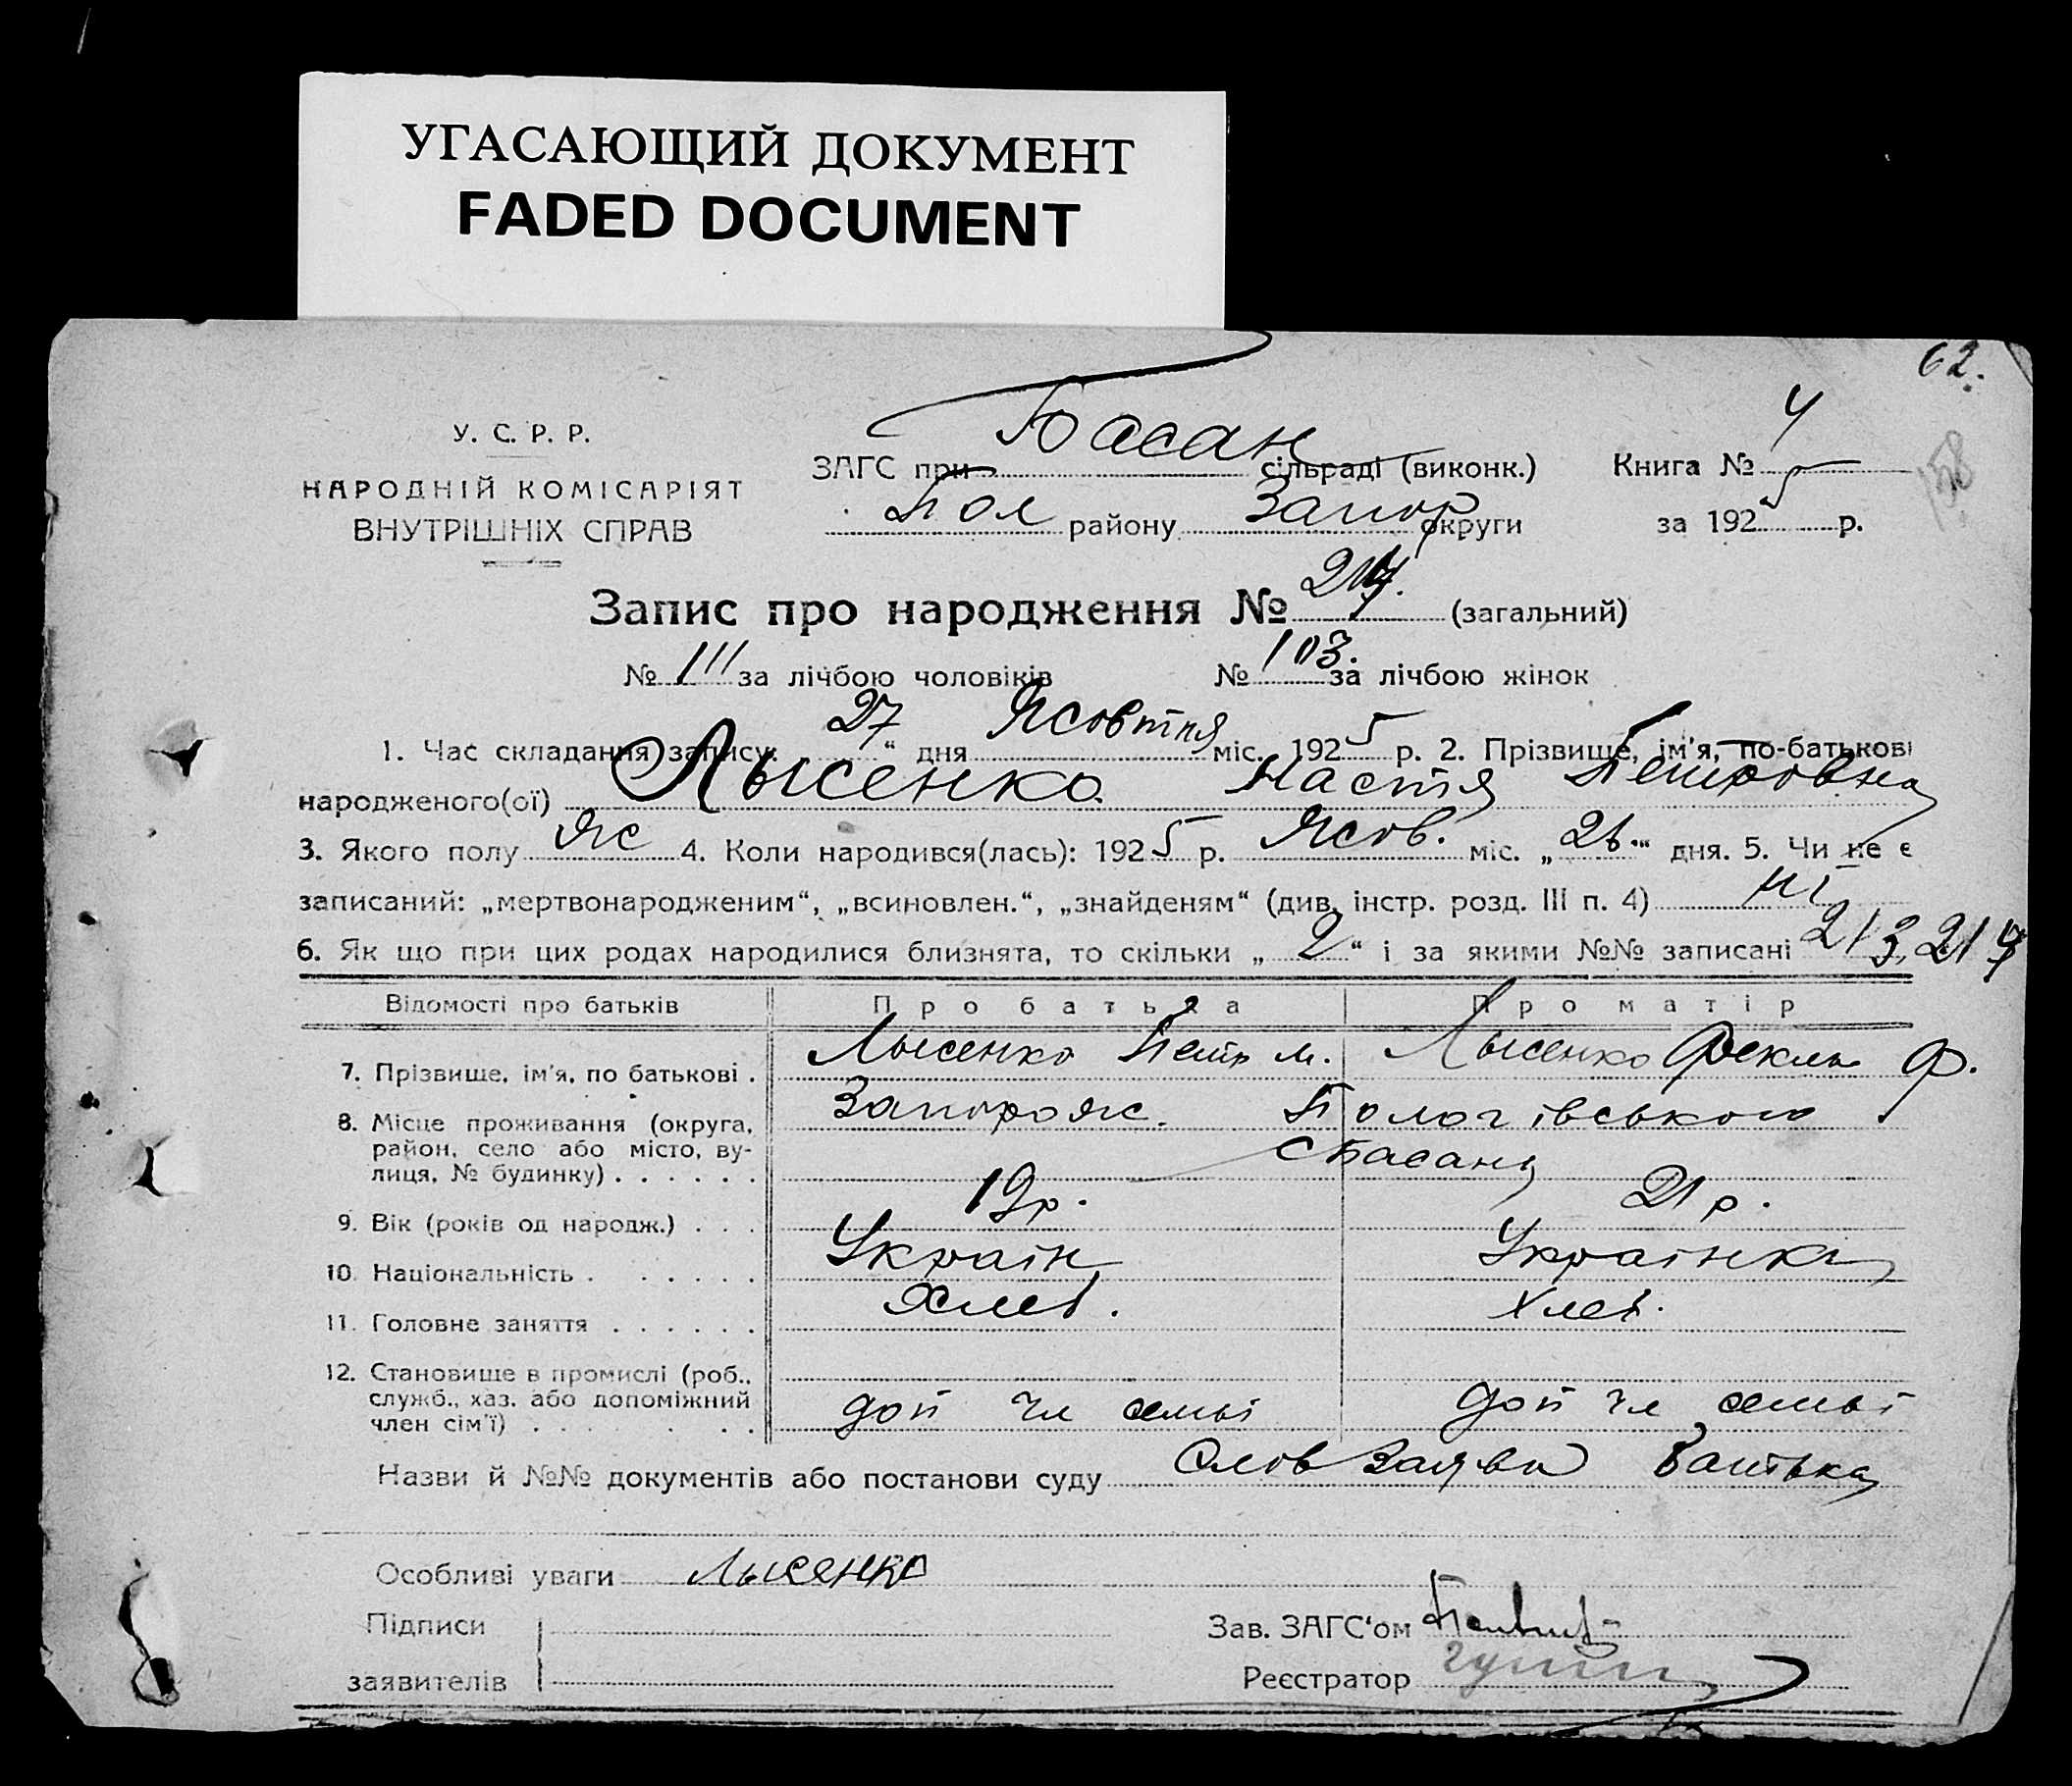 УГАСАЮЩИЙ ДОКУМЕНТ
FADED DOCUMENT
62.
У. С. Р. Р.
НАРОДНІЙ КОМІСАРІЯТ
ВНУТРІШНІХ СПРАВ
ЗАГС при Басан сільраді (виконк.)
Пол району Запор округи
Книга № 4
за 1925 р.
158
Запис про народження № 214. (загальний)
№ 111 за лічбою чоловіків № 103. за лічбою жінок
1. Час складання запису: 27 “ дня Жовтня міс. 1925 р. 2. Прізвище, ім'я, по-батькові
народженого(ої) Лысенко Настя Петровна
3. Якого полу Жс 4. Коли народився(лась): 1925 р. Жов. міс. „26.“ дня. 5. Чи не є
записаний: „мертвонародженим“, „всиновлен.“, „знайденям“ (див. інстр. розд. III п. 4) ні
6. Як що при цих родах народилися близнята, то скільки „2“ і за якими №№ записані 213, 214
Відомості про батьків Про батька Про матір
7. Прізвище, ім'я, по батькові . Лысенко Петр М. Лысенко Фекла Ф.
8. Місце проживання (округа, район, село або місто, вулиця, № будинку) . . . . . . Запорож. Пологівського
с Басань
9. Вік (років од народж.) . . . 19 р. 21 р.
10. Національність . . . . . . Українц Українка
11. Головне заняття . . . . . . Хлеб. Хлеб.
12. Становище в промислі (роб., служб., хаз. або допоміжний член сім'ї) . . . . . . доп чл семьі доп чл семьі
Назви й №№ документів або постанови суду Слов Заява Батька
Особливі уваги Лысенко
Підписи
заявителів
Зав. ЗАГС'ом
Реєстратор